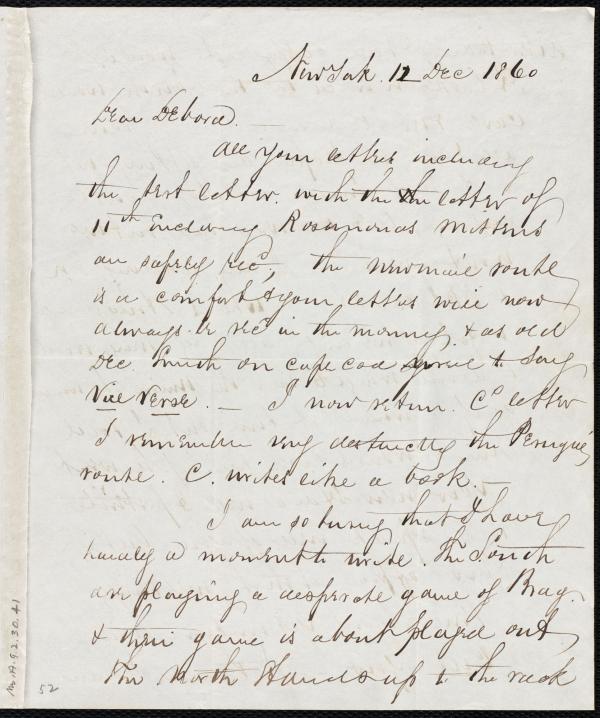 New York. 12 Dec 1860
Dear Debora. —
All your letters including
the last letter. with the the letter of
11th Enclosing Rosamonds Mittens
are safely recd, the new mail route
is a comfort & your letters will now
always be recd in the morning & as old
Dec. Smith on Cape Cod used to say
Vice Verse. — I now return. Cs letter
I remember very distinctly the Perugia
route. C. writes like a book. —
I am so busy that I have
hardly a moment to write. The South
are playing a desperate game of Brag.
& their game is about played out
The North Stands up to the rack
M.A.9.2.30.41
52